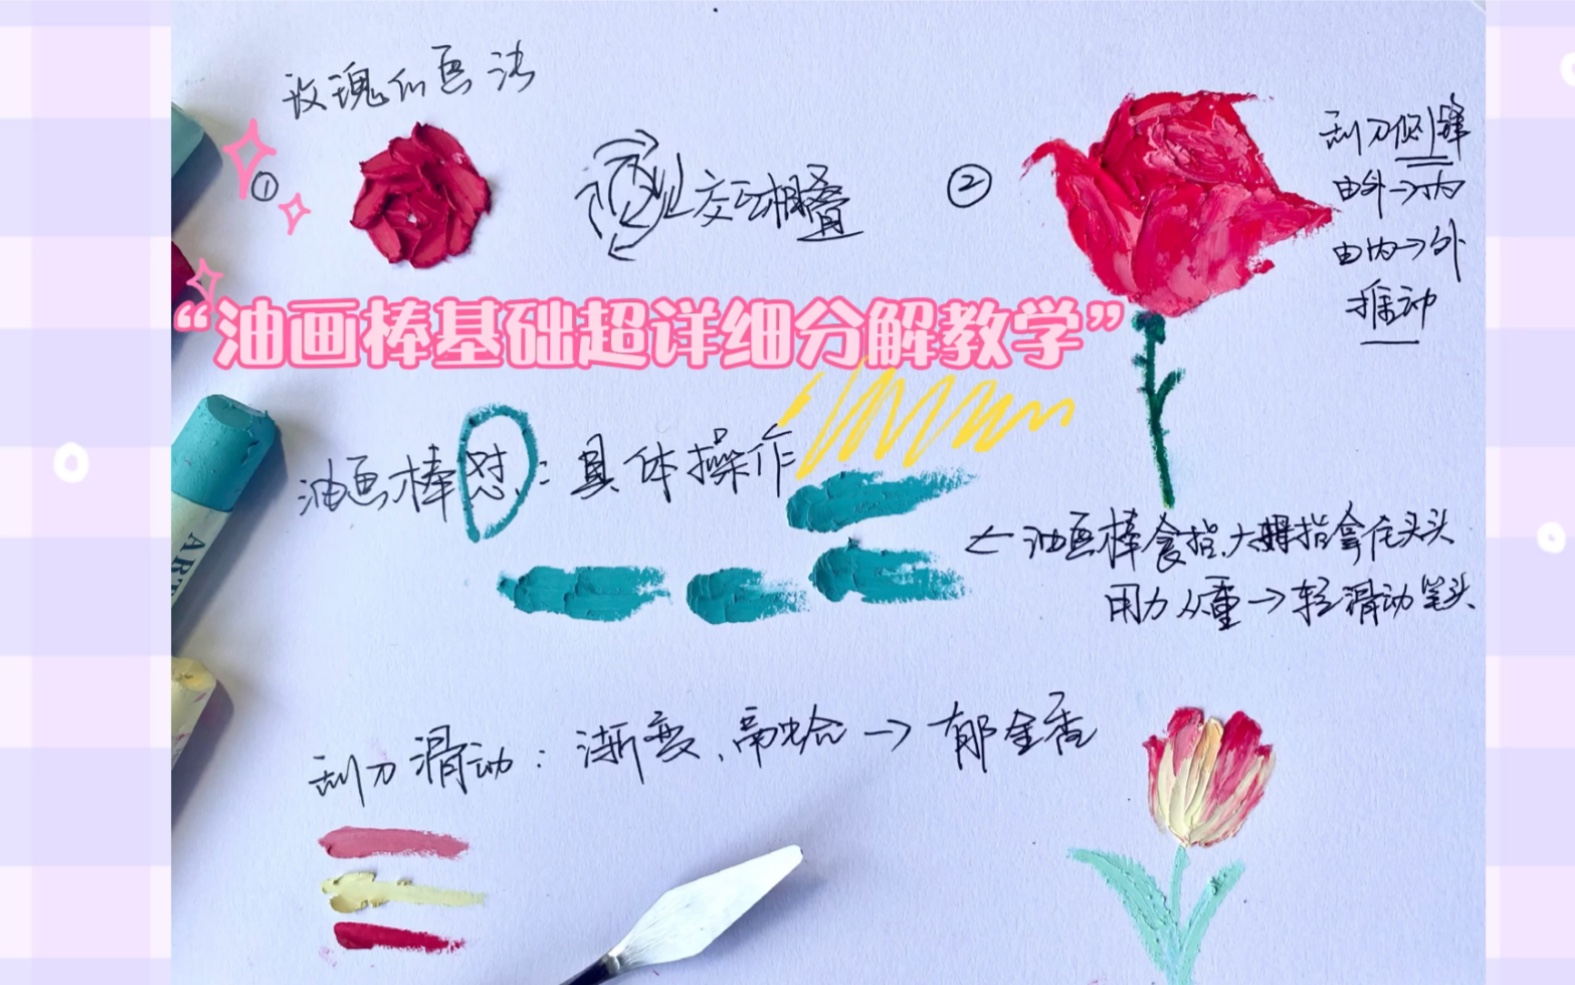 玫瑰的画法
①
交互相叠
②
刮刀侧峰
由外→内
由内→外
推动
“油画棒基础超详细分解教学”
油画棒怼：具体操作
←油画棒食指、大拇指拿住头头
用力从重→轻滑动笔头
ART
刮刀滑动：渐变、高光→郁金香